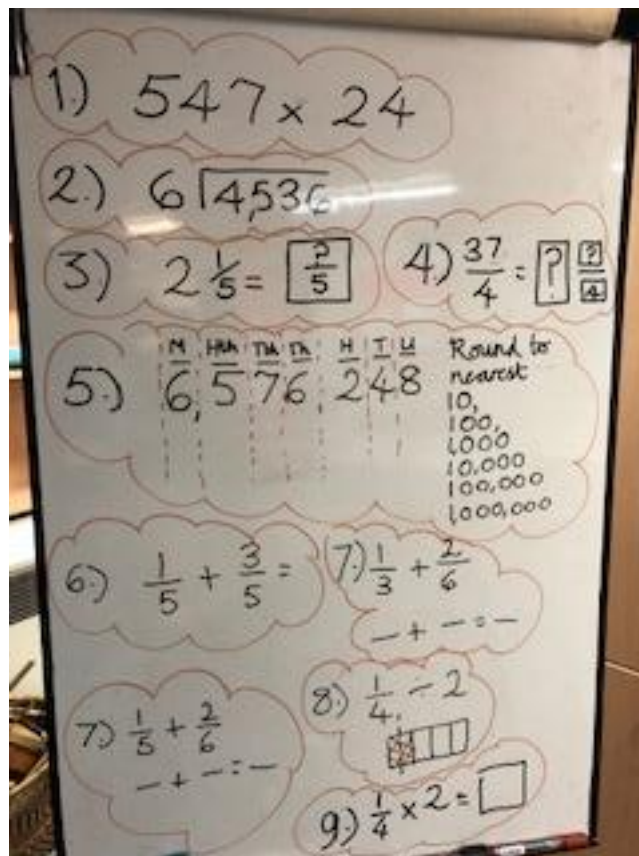 1.) 547 x 24
2.) 6 4,536
3) 2 1/5 = ?/5
4) 37/4 = ? ?/4
5.) M HTh TTh Th H T U
6,576 248
Round to
nearest
10,
100,
1,000
10,000
100,000
1,000,000
6.) 1/5 + 3/5 =
7.) 1/3 + 2/6
— + — = —
7.) 1/5 + 2/6
— + — = —
8.) 1/4 ÷ 2
9.) 1/4 x 2 =